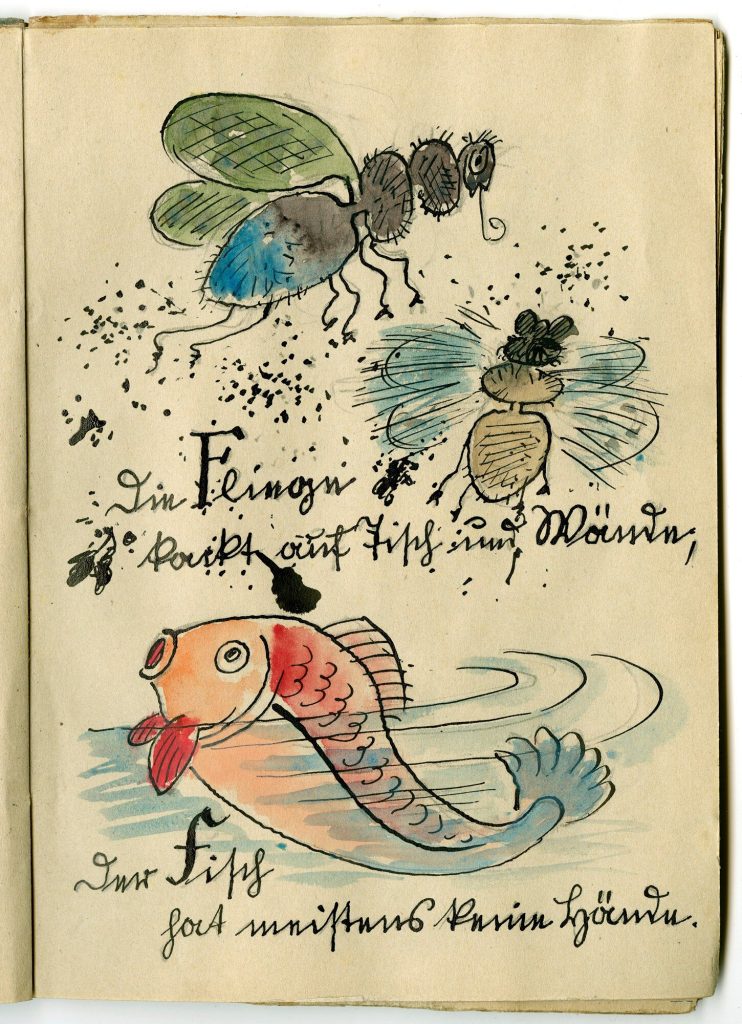 Die Fliege
kackt auf Tisch und Wände,
Der Fisch
hat meistens keine Hände.